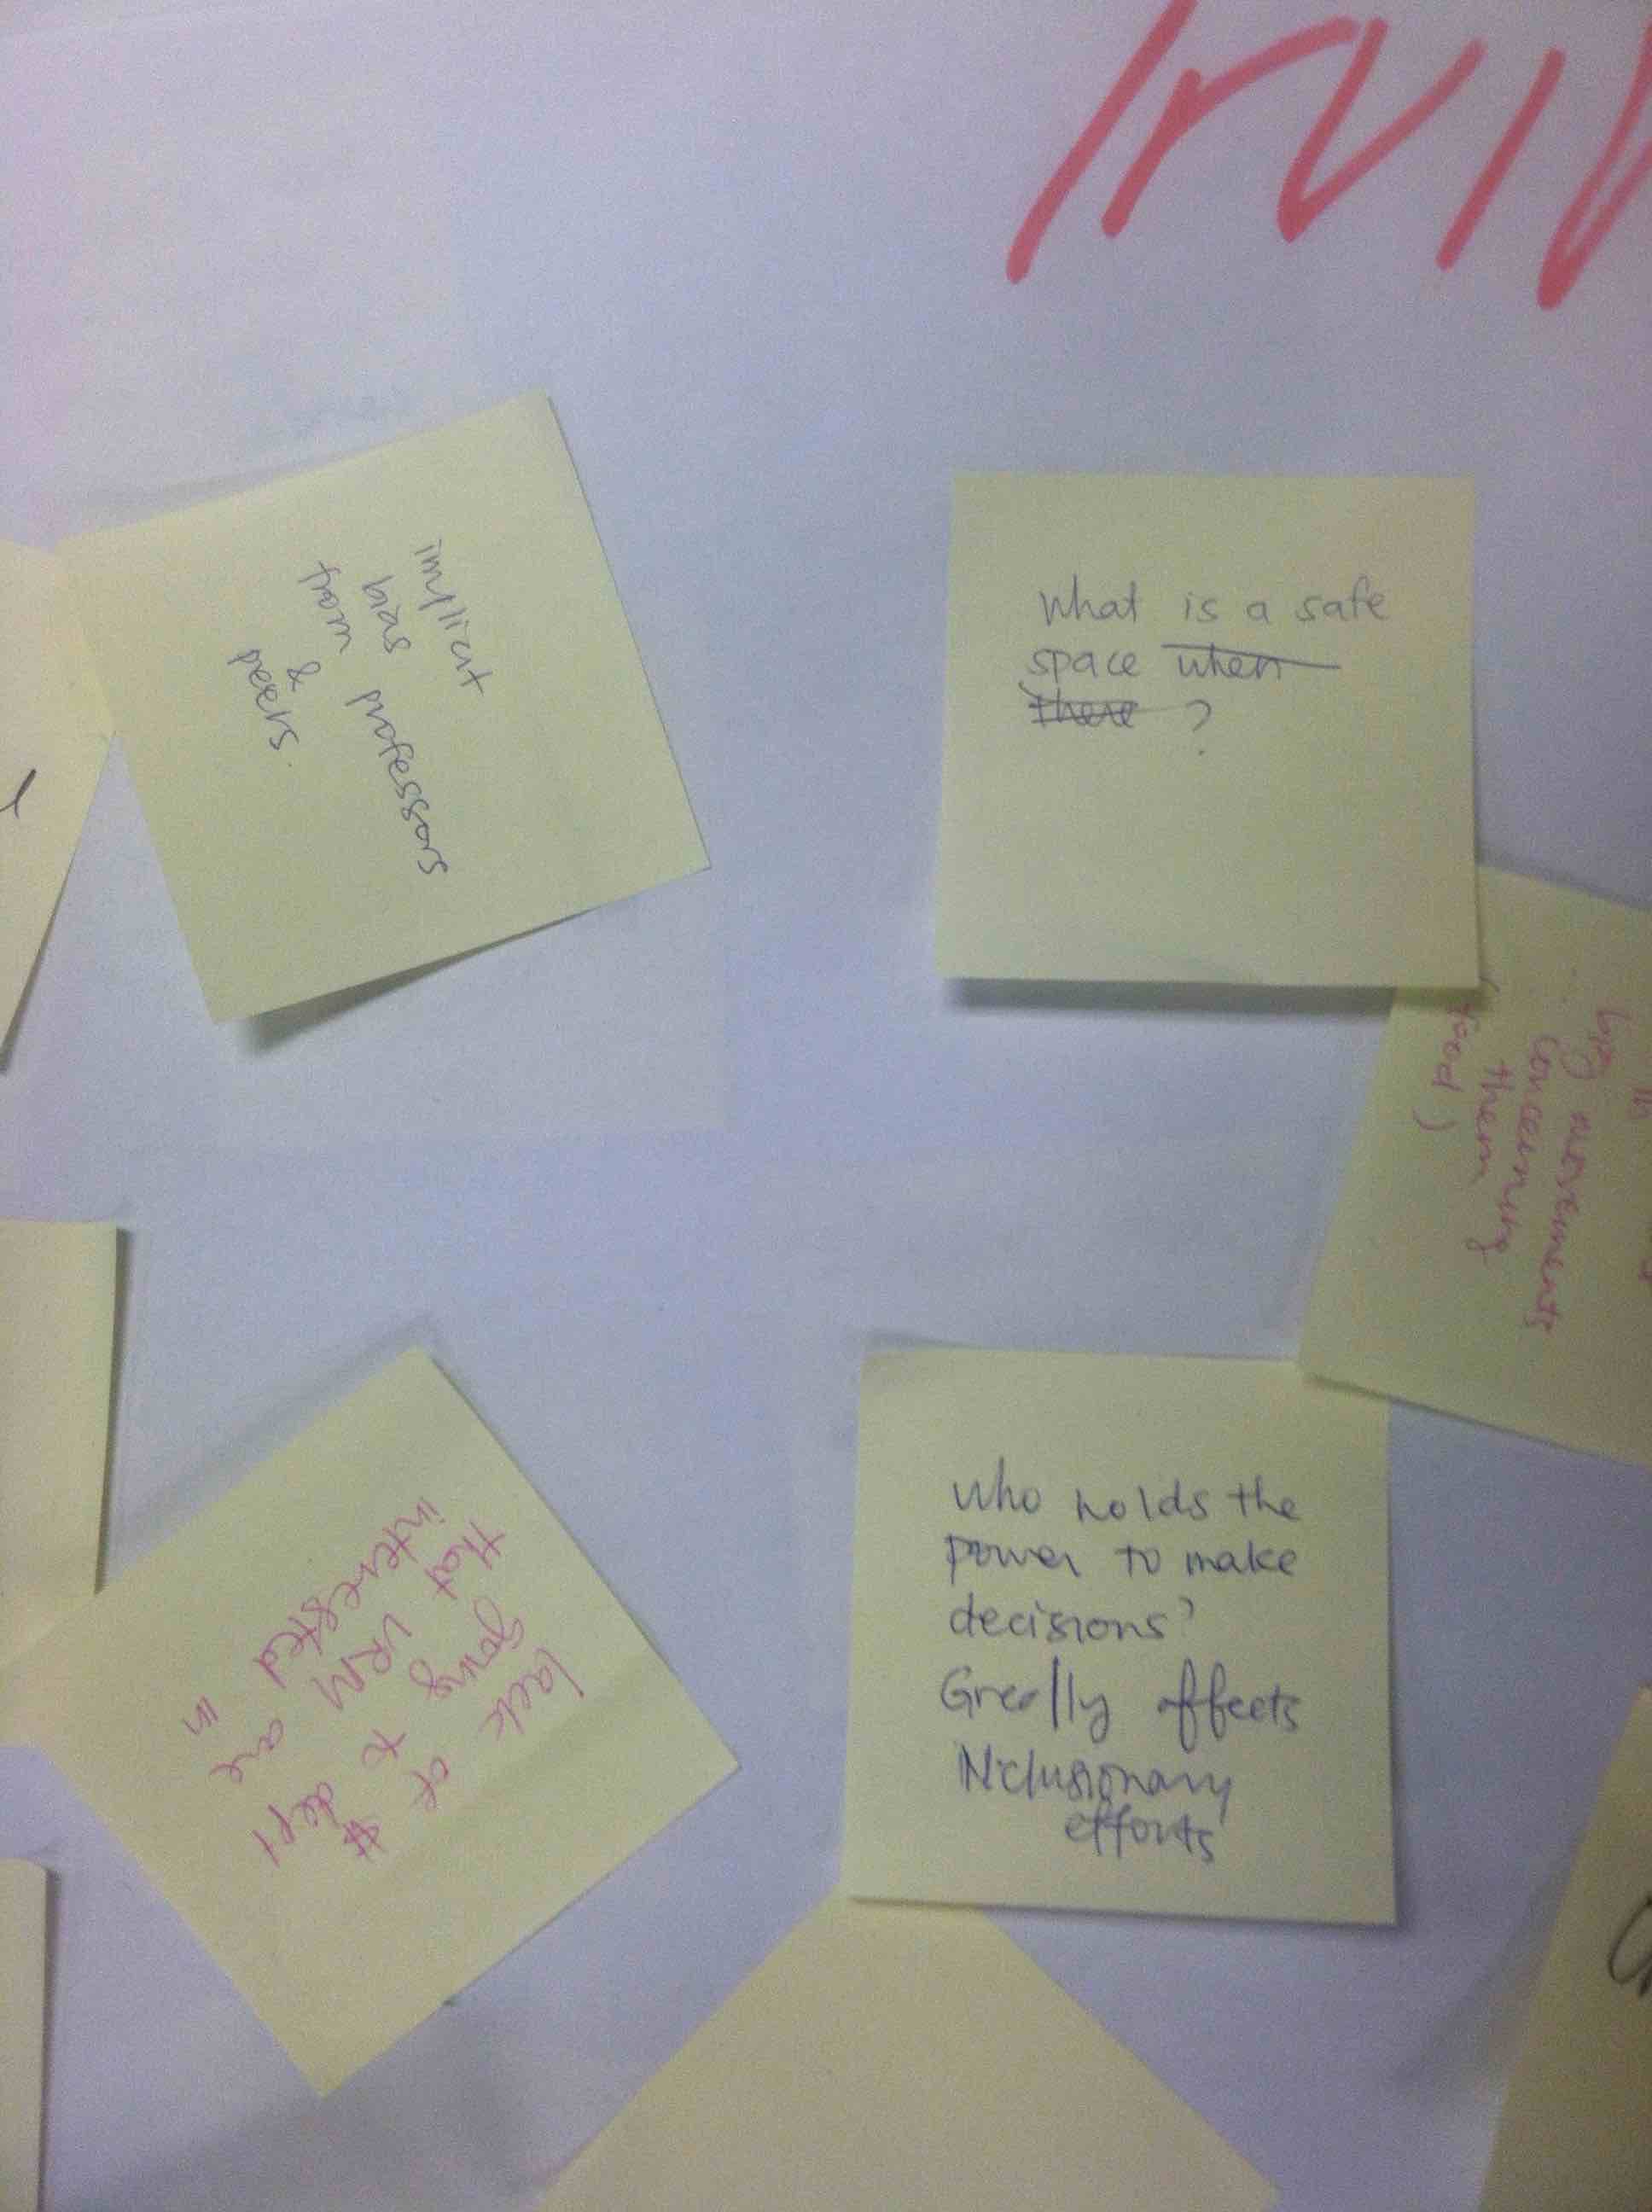 implicit
bias
from professors
&
peers.
What is a safe
space when
there ?
big movements
concerning
them
(food)
lack of $
going to dept
that URM are
interested in
who holds the
power to make
decisions?
Greatly affects
INclusionary
efforts